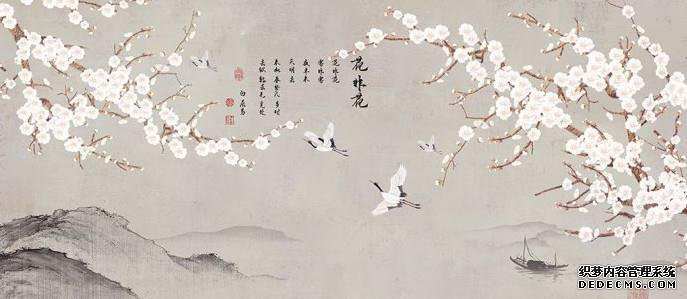 花非花
花非花
雾非雾
夜半来
天明去
来如春梦几多时
去似朝云无觅处
白居易
织梦内容管理系统
DEDECMS.COM